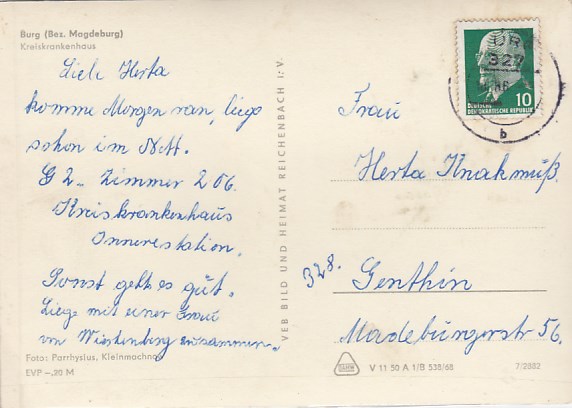 Burg (Bez. Magdeburg)
Kreiskrankenhaus
Liebe Herta
komme Morgen ran, liege
schon im Bett.
G 2. Zimmer 206.
Kreiskrankenhaus
Innerestation.
Sonst geht es gut.
Liege mit einer Frau
von Wüstenberg zusammen.
Foto: Parrhysius, Kleinmachnow
EVP –,20 M
VEB BILD UND HEIMAT REICHENBACH I. V.
URG
327
b
10
DEUTSCHE
DEMOKRATISCHE REPUBLIK
Frau
Herta Knakmuß.
328. Genthin
Madeburgerstr 56.
V 11 50 A 1/B 538/68
7/2882